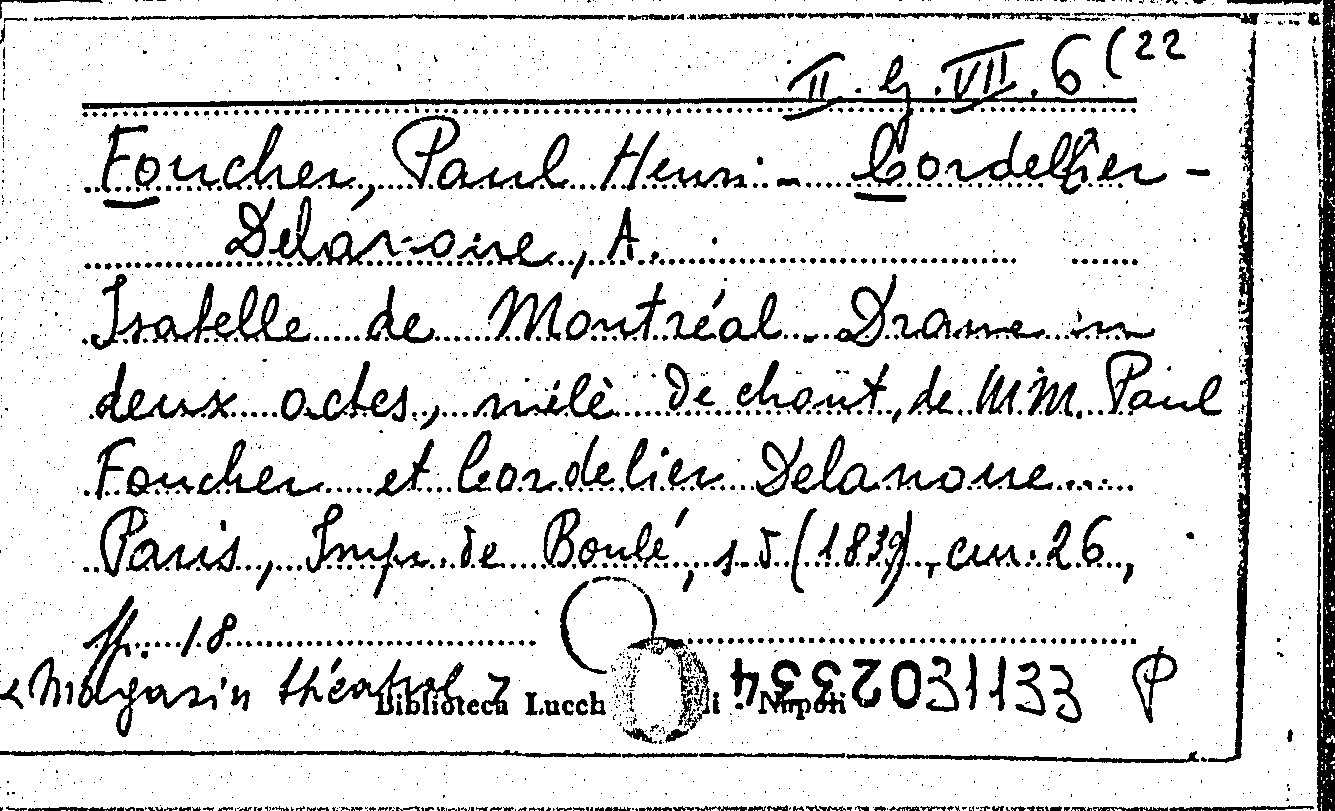 II. G. VII. 6 (22
Foucher, Paul Henri - Cordellier -
Delanoue, A.
Isabelle de Montréal. Drame in
deux actes, mélè de chant, de MM. Paul
Foucher et Cordelier Delanoue...
Paris, Impr. de Boulé, s.d (1839), cm. 26,
ff. 18
< Magasin théatral >
Biblioteca Lucch i - Napoli
P